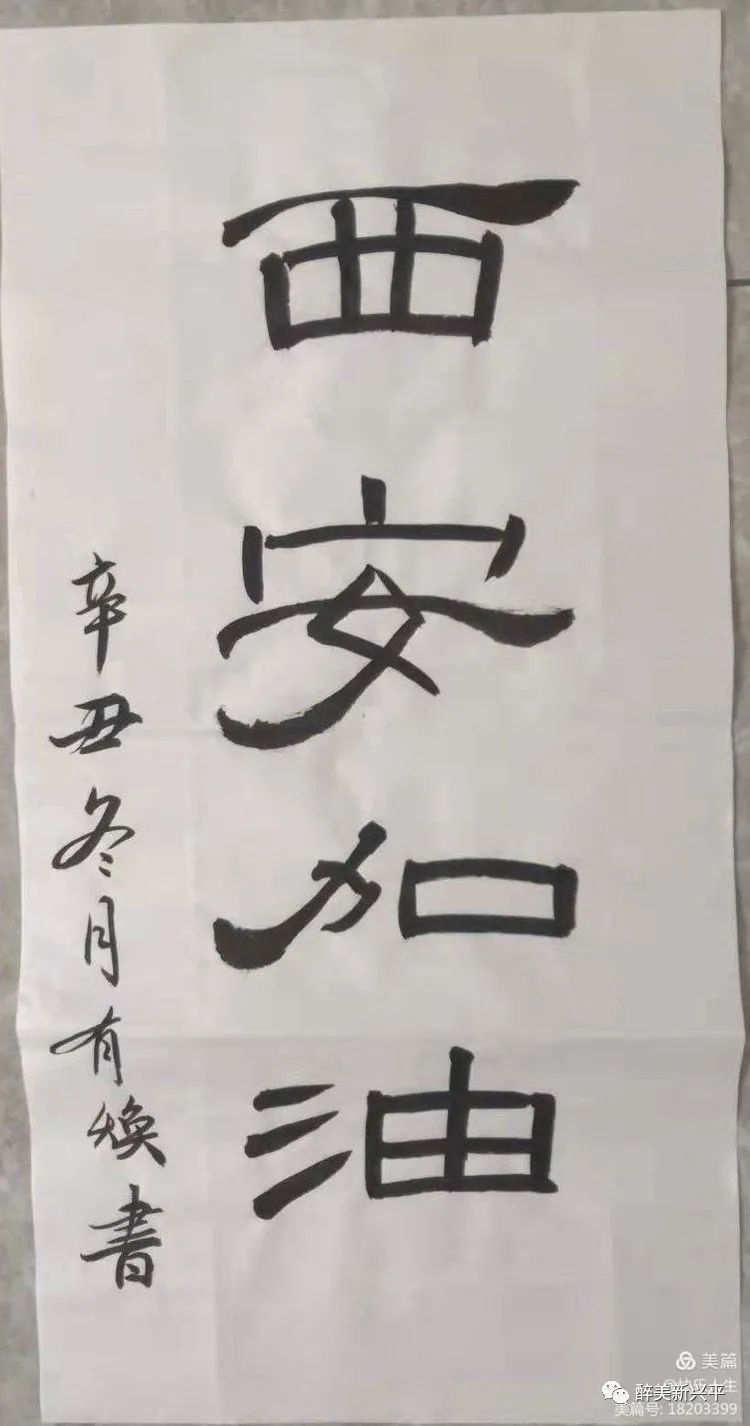 西安加油
辛丑冬月有焕書
美篇
醉美新兴平
美篇号: 18203399